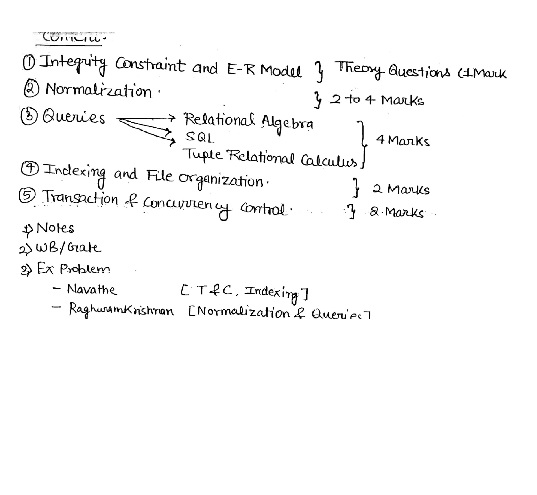 Content.
① Integrity Constraint and E-R Model } Theory Questions (1 Mark
② Normalization. } 2 to 4 Marks
③ Queries → Relational Algebra
→ SQL
→ Tuple Relational Calculus } 4 Marks
④ Indexing and File Organization. } 2 Marks
⑤ Transaction & Concurrency Control. } 2 Marks
1) Notes
2) WB/Gate
3) Ex Problem
– Navathe [T & C, Indexing]
– RaghuramKrishnan [Normalization & Queries]